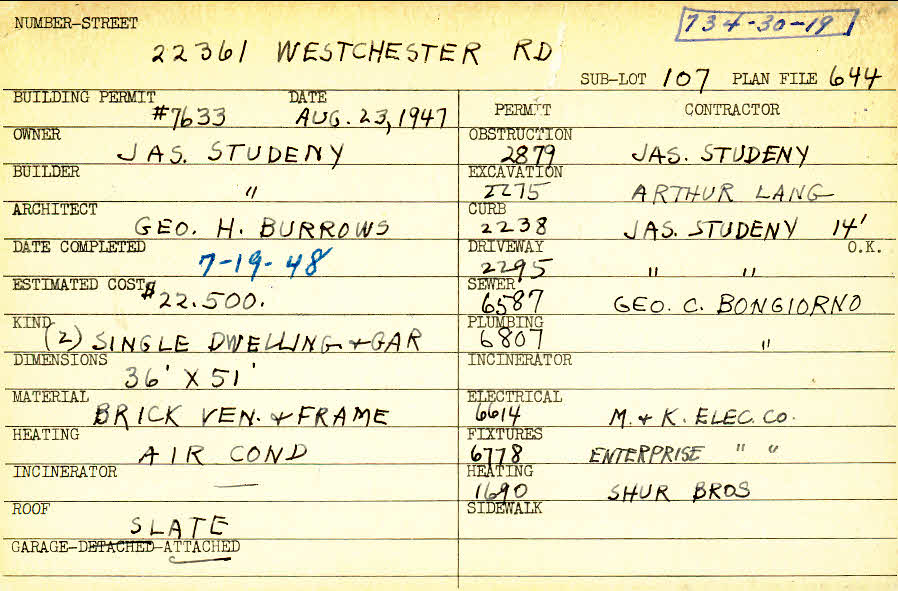 NUMBER-STREET
734-30-19
22361 WESTCHESTER RD
SUB-LOT 107 PLAN FILE 644
BUILDING PERMIT DATE
#7633 AUG. 23, 1947
OWNER
JAS. STUDENY
BUILDER
"
ARCHITECT
GEO. H. BURROWS
DATE COMPLETED
7-19-48
ESTIMATED COST
$22.500.
KIND
(2) SINGLE DWELLING + GAR
DIMENSIONS
36' X 51'
MATERIAL
BRICK VEN. & FRAME
HEATING
AIR COND
INCINERATOR
—
ROOF
SLATE
GARAGE-DETACHED-ATTACHED
PERMIT CONTRACTOR
OBSTRUCTION
2879 JAS. STUDENY
EXCAVATION
2275 ARTHUR LANG
CURB
2238 JAS. STUDENY 14'
DRIVEWAY O.K.
2295 " "
SEWER
6587 GEO. C. BONGIORNO
PLUMBING
6807 "
INCINERATOR
ELECTRICAL
6614 M. & K. ELEC. CO.
FIXTURES
6778 ENTERPRISE " "
HEATING
1690 SHUR BROS
SIDEWALK